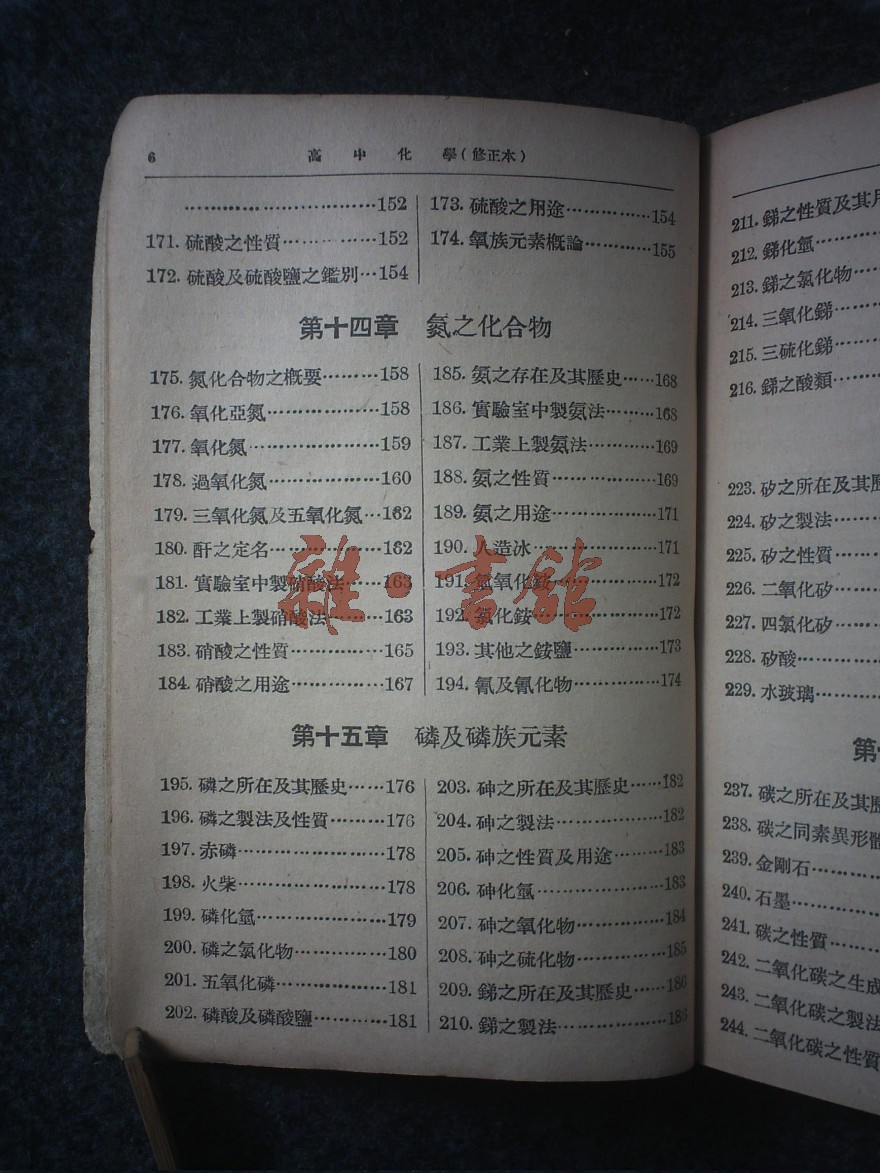 6 高中化學(修正本)
……………………………152
171. 硫酸之性質……………152
172. 硫酸及硫酸鹽之鑑別…154
173. 硫酸之用途……………154
174. 氧族元素概論…………155
第十四章 氮之化合物
175. 氮化合物之概要………158
176. 氧化亞氮………………158
177. 氧化氮…………………159
178. 過氧化氮………………160
179. 三氧化氮及五氧化氮…162
180. 酐之定名………………162
181. 實驗室中製硝酸法……163
182. 工業上製硝酸法………163
183. 硝酸之性質……………165
184. 硝酸之用途……………167
185. 氨之存在及其歷史……168
186. 實驗室中製氨法………168
187. 工業上製氨法…………169
188. 氨之性質………………169
189. 氨之用途………………171
190. 人造冰…………………171
191. 氫氧化銨………………172
192. 氯化銨…………………172
193. 其他之銨鹽……………173
194. 氰及氰化物……………174
第十五章 磷及磷族元素
195. 磷之所在及其歷史……176
196. 磷之製法及性質………176
197. 赤磷……………………178
198. 火柴……………………178
199. 磷化氫…………………179
200. 磷之氯化物……………180
201. 五氧化磷………………181
202. 磷酸及磷酸鹽…………181
203. 砷之所在及其歷史……182
204. 砷之製法………………182
205. 砷之性質及用途………183
206. 砷化氫…………………183
207. 砷之氧化物……………184
208. 砷之硫化物……………185
209. 銻之所在及其歷史……186
210. 銻之製法………………186
211. 銻之性質及其用
212. 銻化氫…………
213. 銻之氯化物……
214. 三氧化銻………
215. 三硫化銻………
216. 銻之酸類………
223. 矽之所在及其歷
224. 矽之製法………
225. 矽之性質………
226. 二氧化矽………
227. 四氯化矽………
228. 矽酸……………
229. 水玻璃…………
第
237. 碳之所在及其歷
238. 碳之同素異形體
239. 金剛石…………
240. 石墨……………
241. 碳之性質………
242. 二氧化碳之生成
243. 二氧化碳之製法
244. 二氧化碳之性質
雜·書館